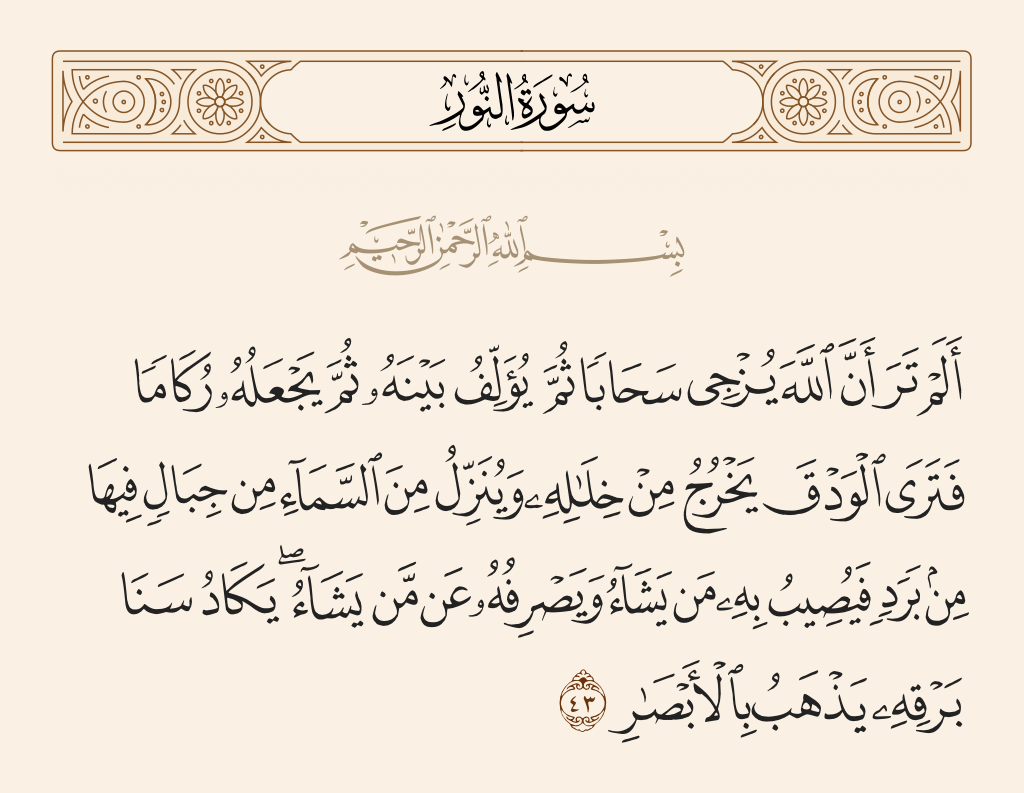 سُورَةُ النُّورِ
بِسْمِ ٱللَّهِ ٱلرَّحْمَٰنِ ٱلرَّحِيمِ
أَلَمْ تَرَ أَنَّ ٱللَّهَ يُزْجِى سَحَابًا ثُمَّ يُؤَلِّفُ بَيْنَهُۥ ثُمَّ يَجْعَلُهُۥ رُكَامًا
فَتَرَى ٱلْوَدْقَ يَخْرُجُ مِنْ خِلَٰلِهِۦ وَيُنَزِّلُ مِنَ ٱلسَّمَآءِ مِن جِبَالٍ فِيهَا
مِنۢ بَرَدٍ فَيُصِيبُ بِهِۦ مَن يَشَآءُ وَيَصْرِفُهُۥ عَن مَّن يَشَآءُ ۖ يَكَادُ سَنَا
بَرْقِهِۦ يَذْهَبُ بِٱلْأَبْصَٰرِ ٤٣